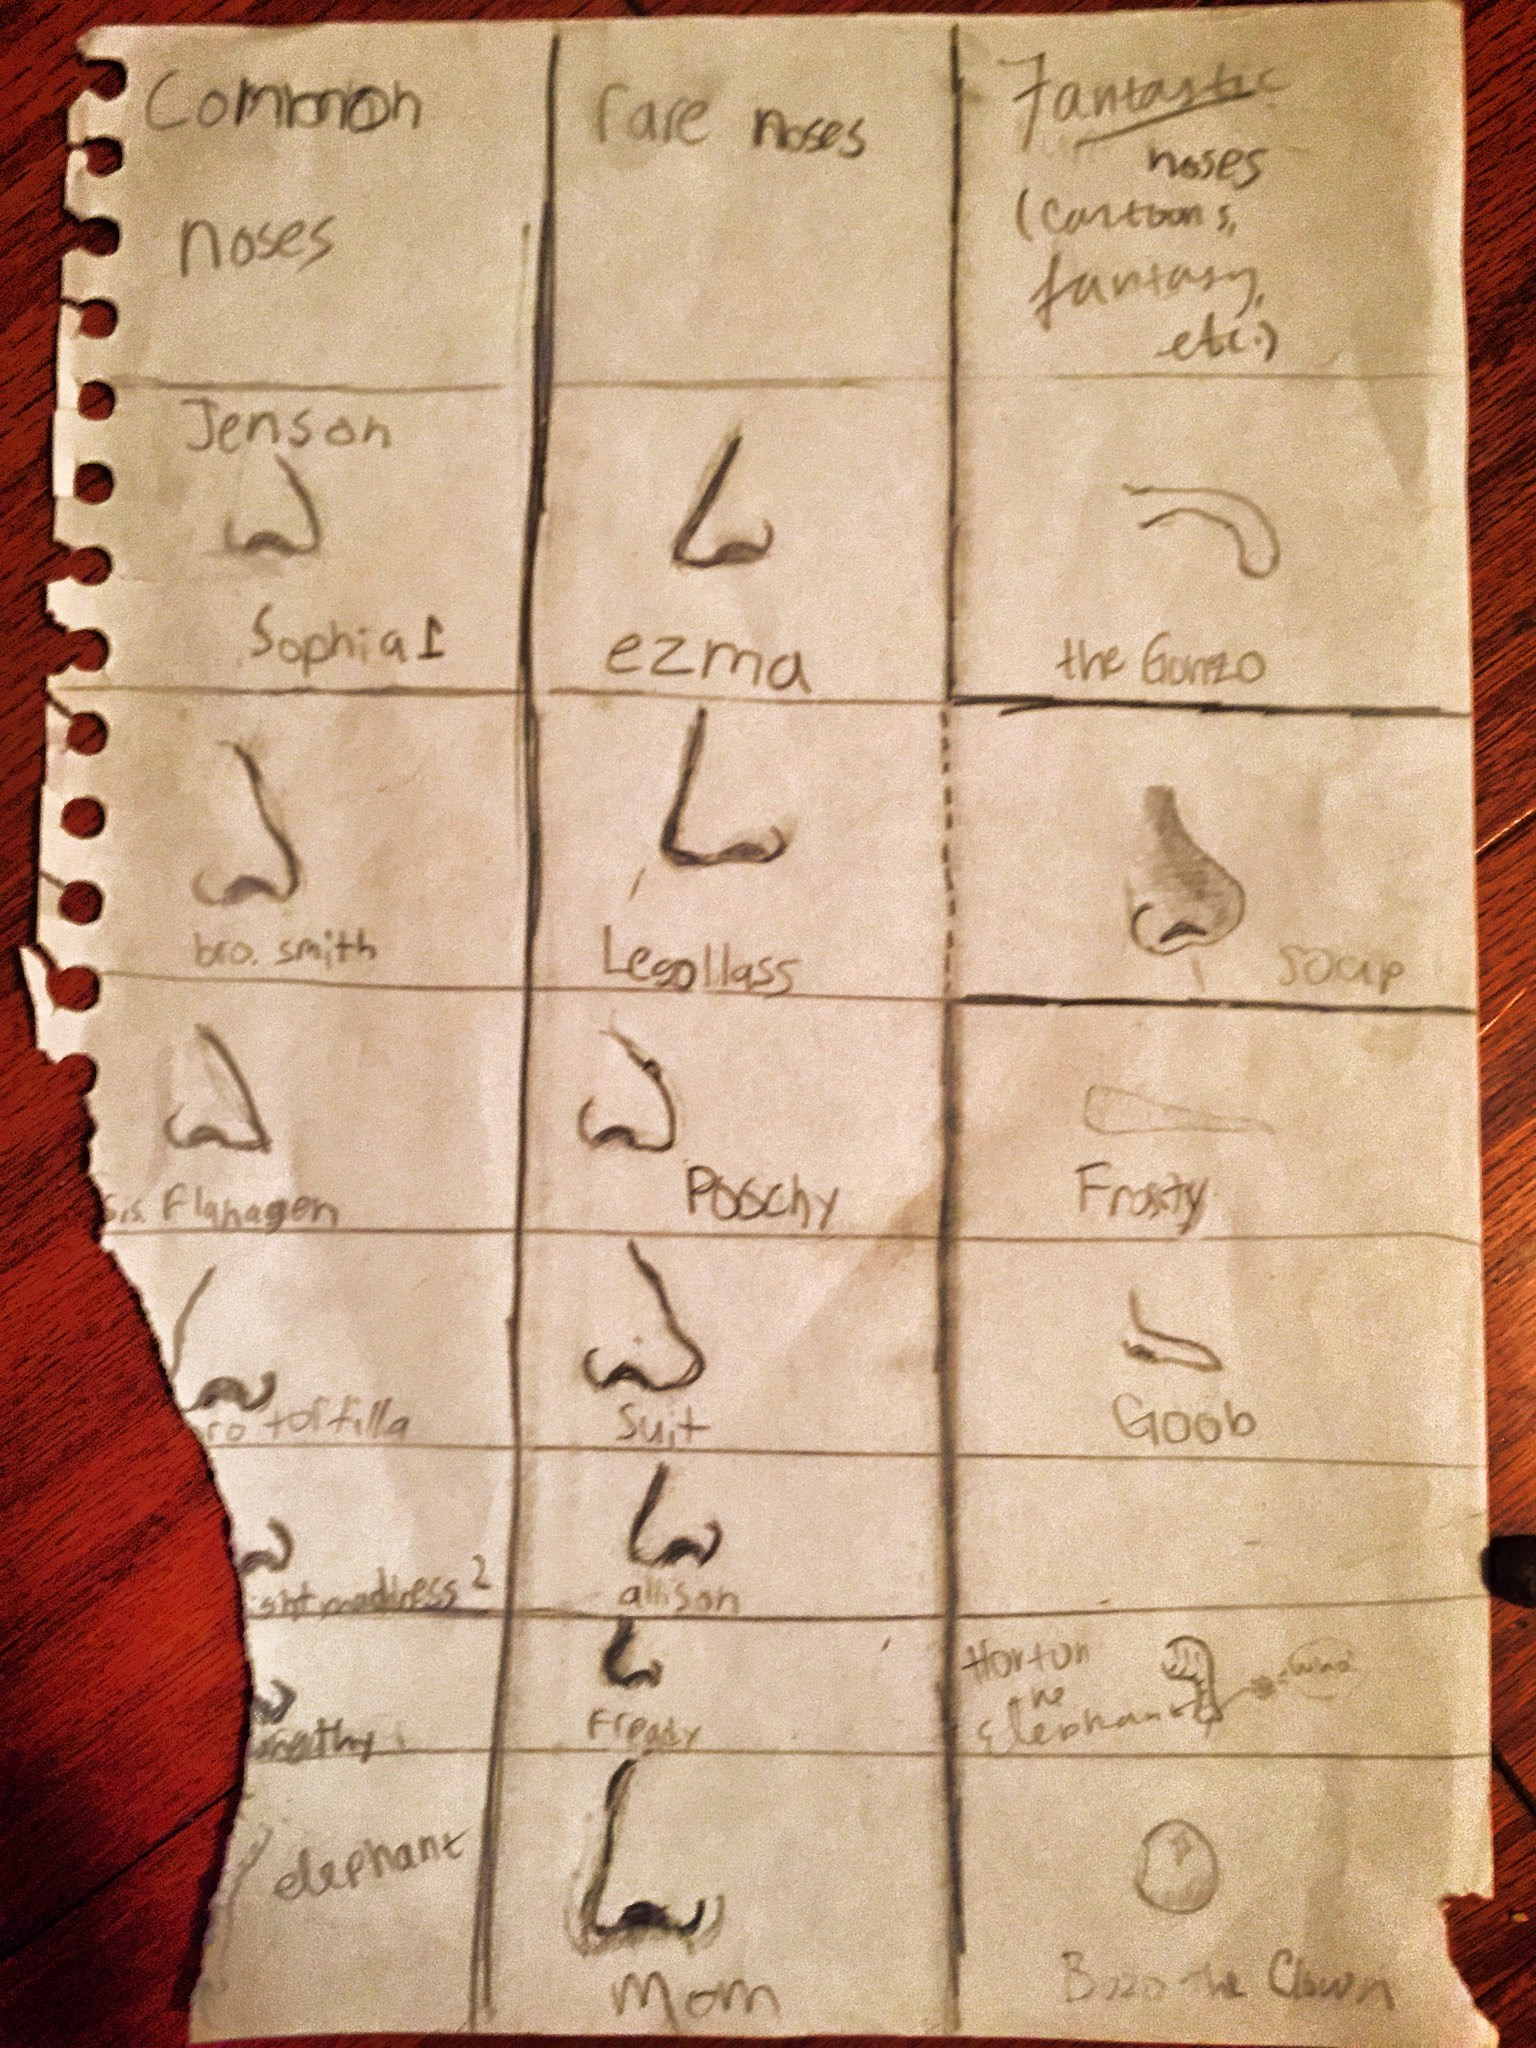 Common
noses
rare noses
Fantastic
noses
(cartoons,
fantasy,
etc.)
Jenson
Sophia 1
ezma
the Gonzo
bro. smith
Legollass
soap
sis. Flanagen
Poochy
Frosty
tortilla
Suit
Goob
allison
Horton
the
Elephant
Fready
elephant
Mom
Bozo the Clown